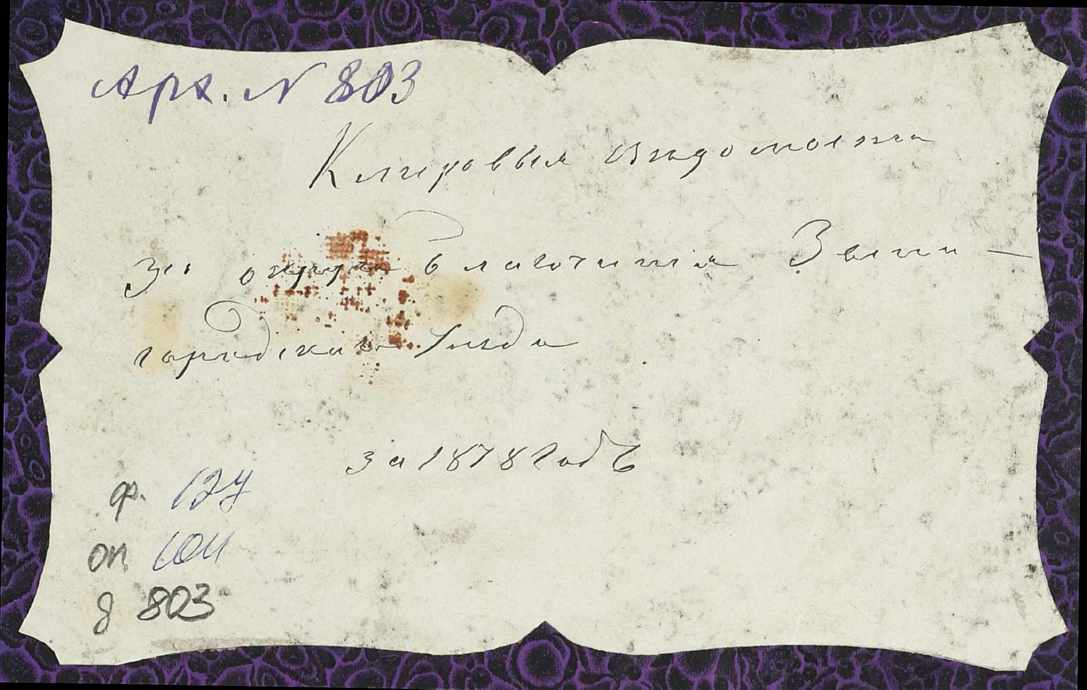 Арх. N 803
Клировыя ведомости
3го округа благочиния Звени-
городскаго Уезда
за 1878 годъ
ф. 127
оп.
д 803